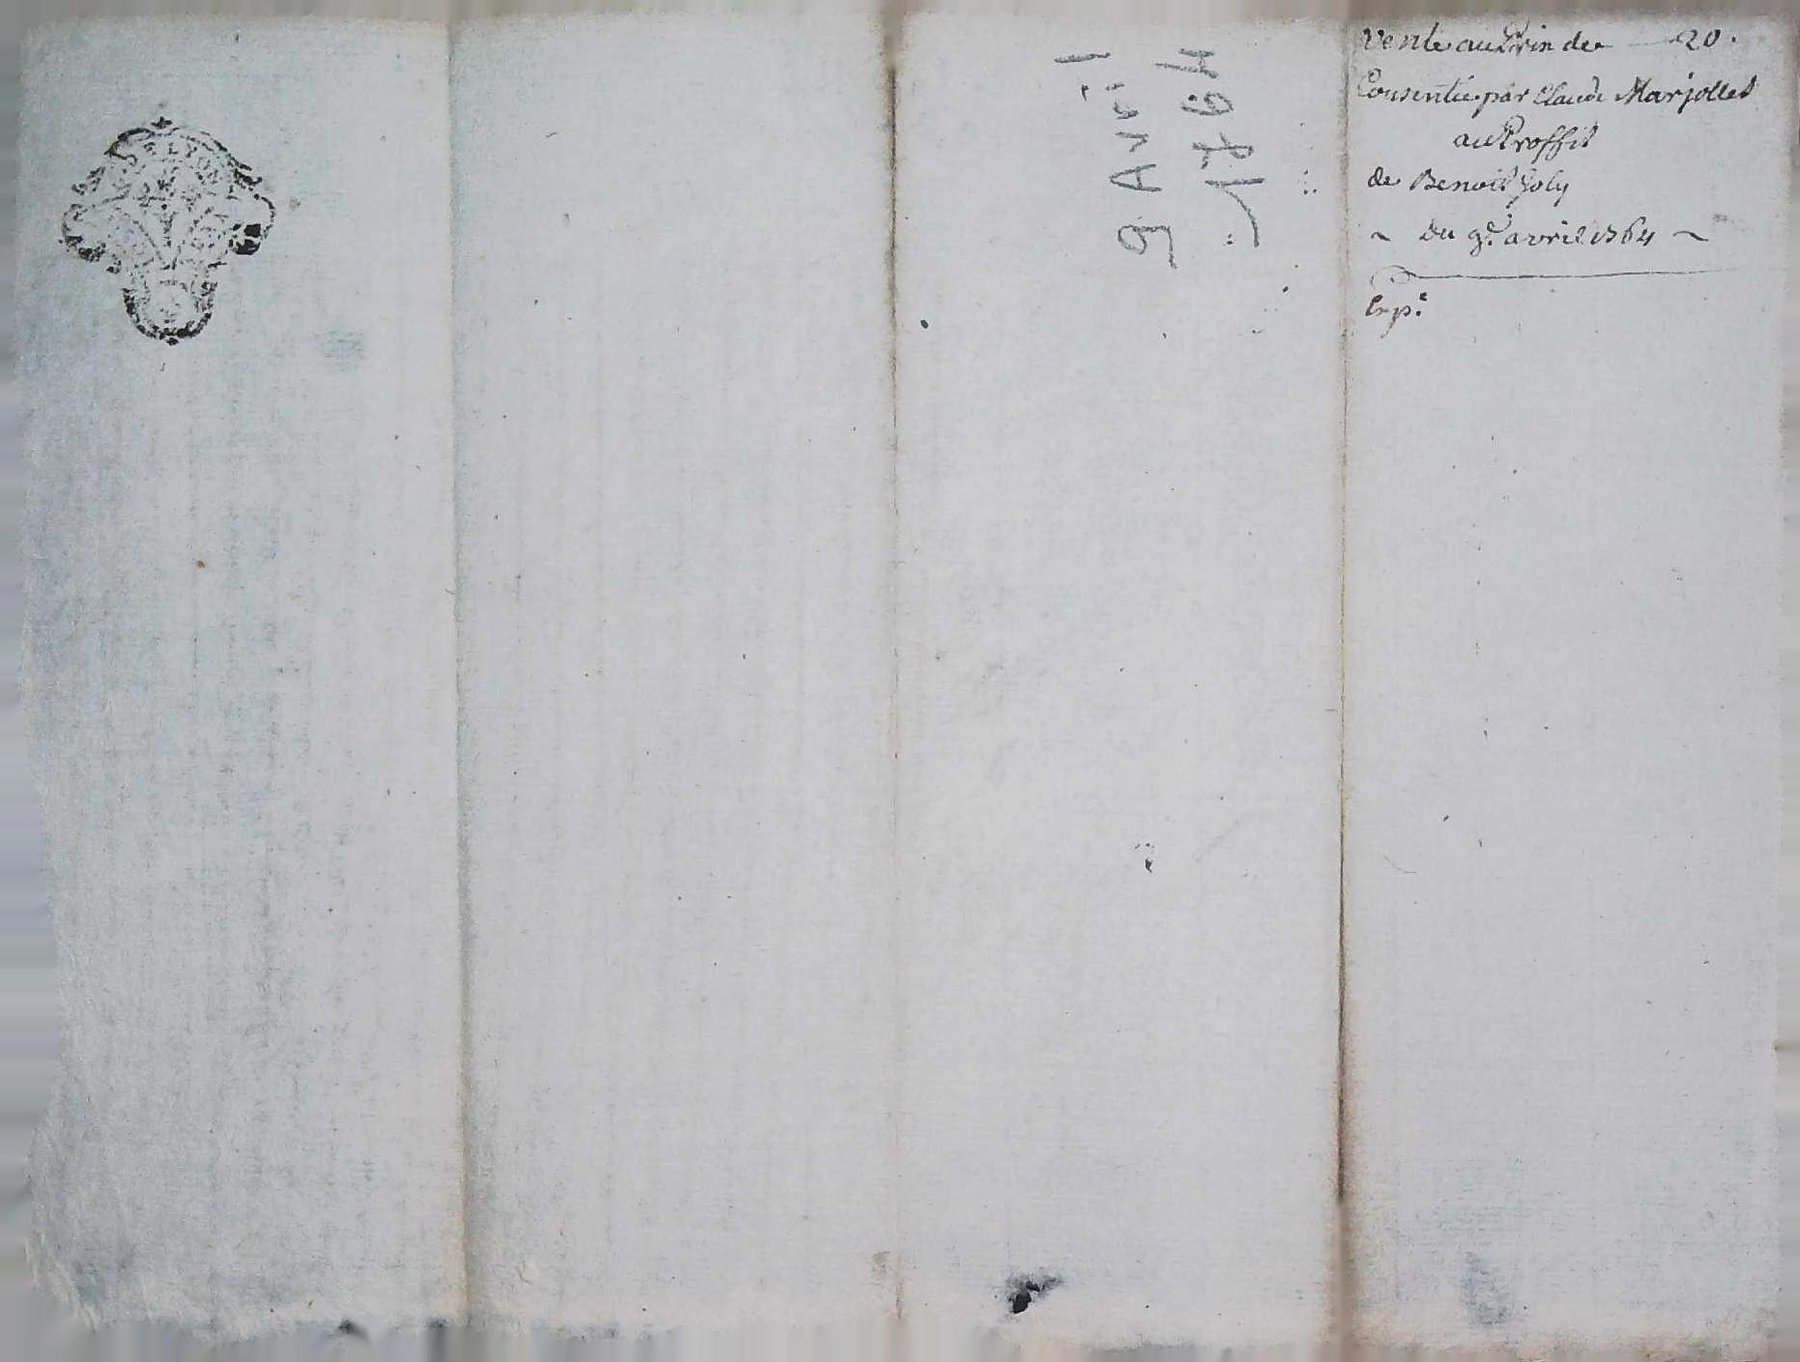 DE LYON
9 Avril
1764
Vente au Prix de 20.
Consentie par Claude Marjollet
au Proffit
de Benoit Joly
~ Du 9e. avril 1764 ~
Exp.e